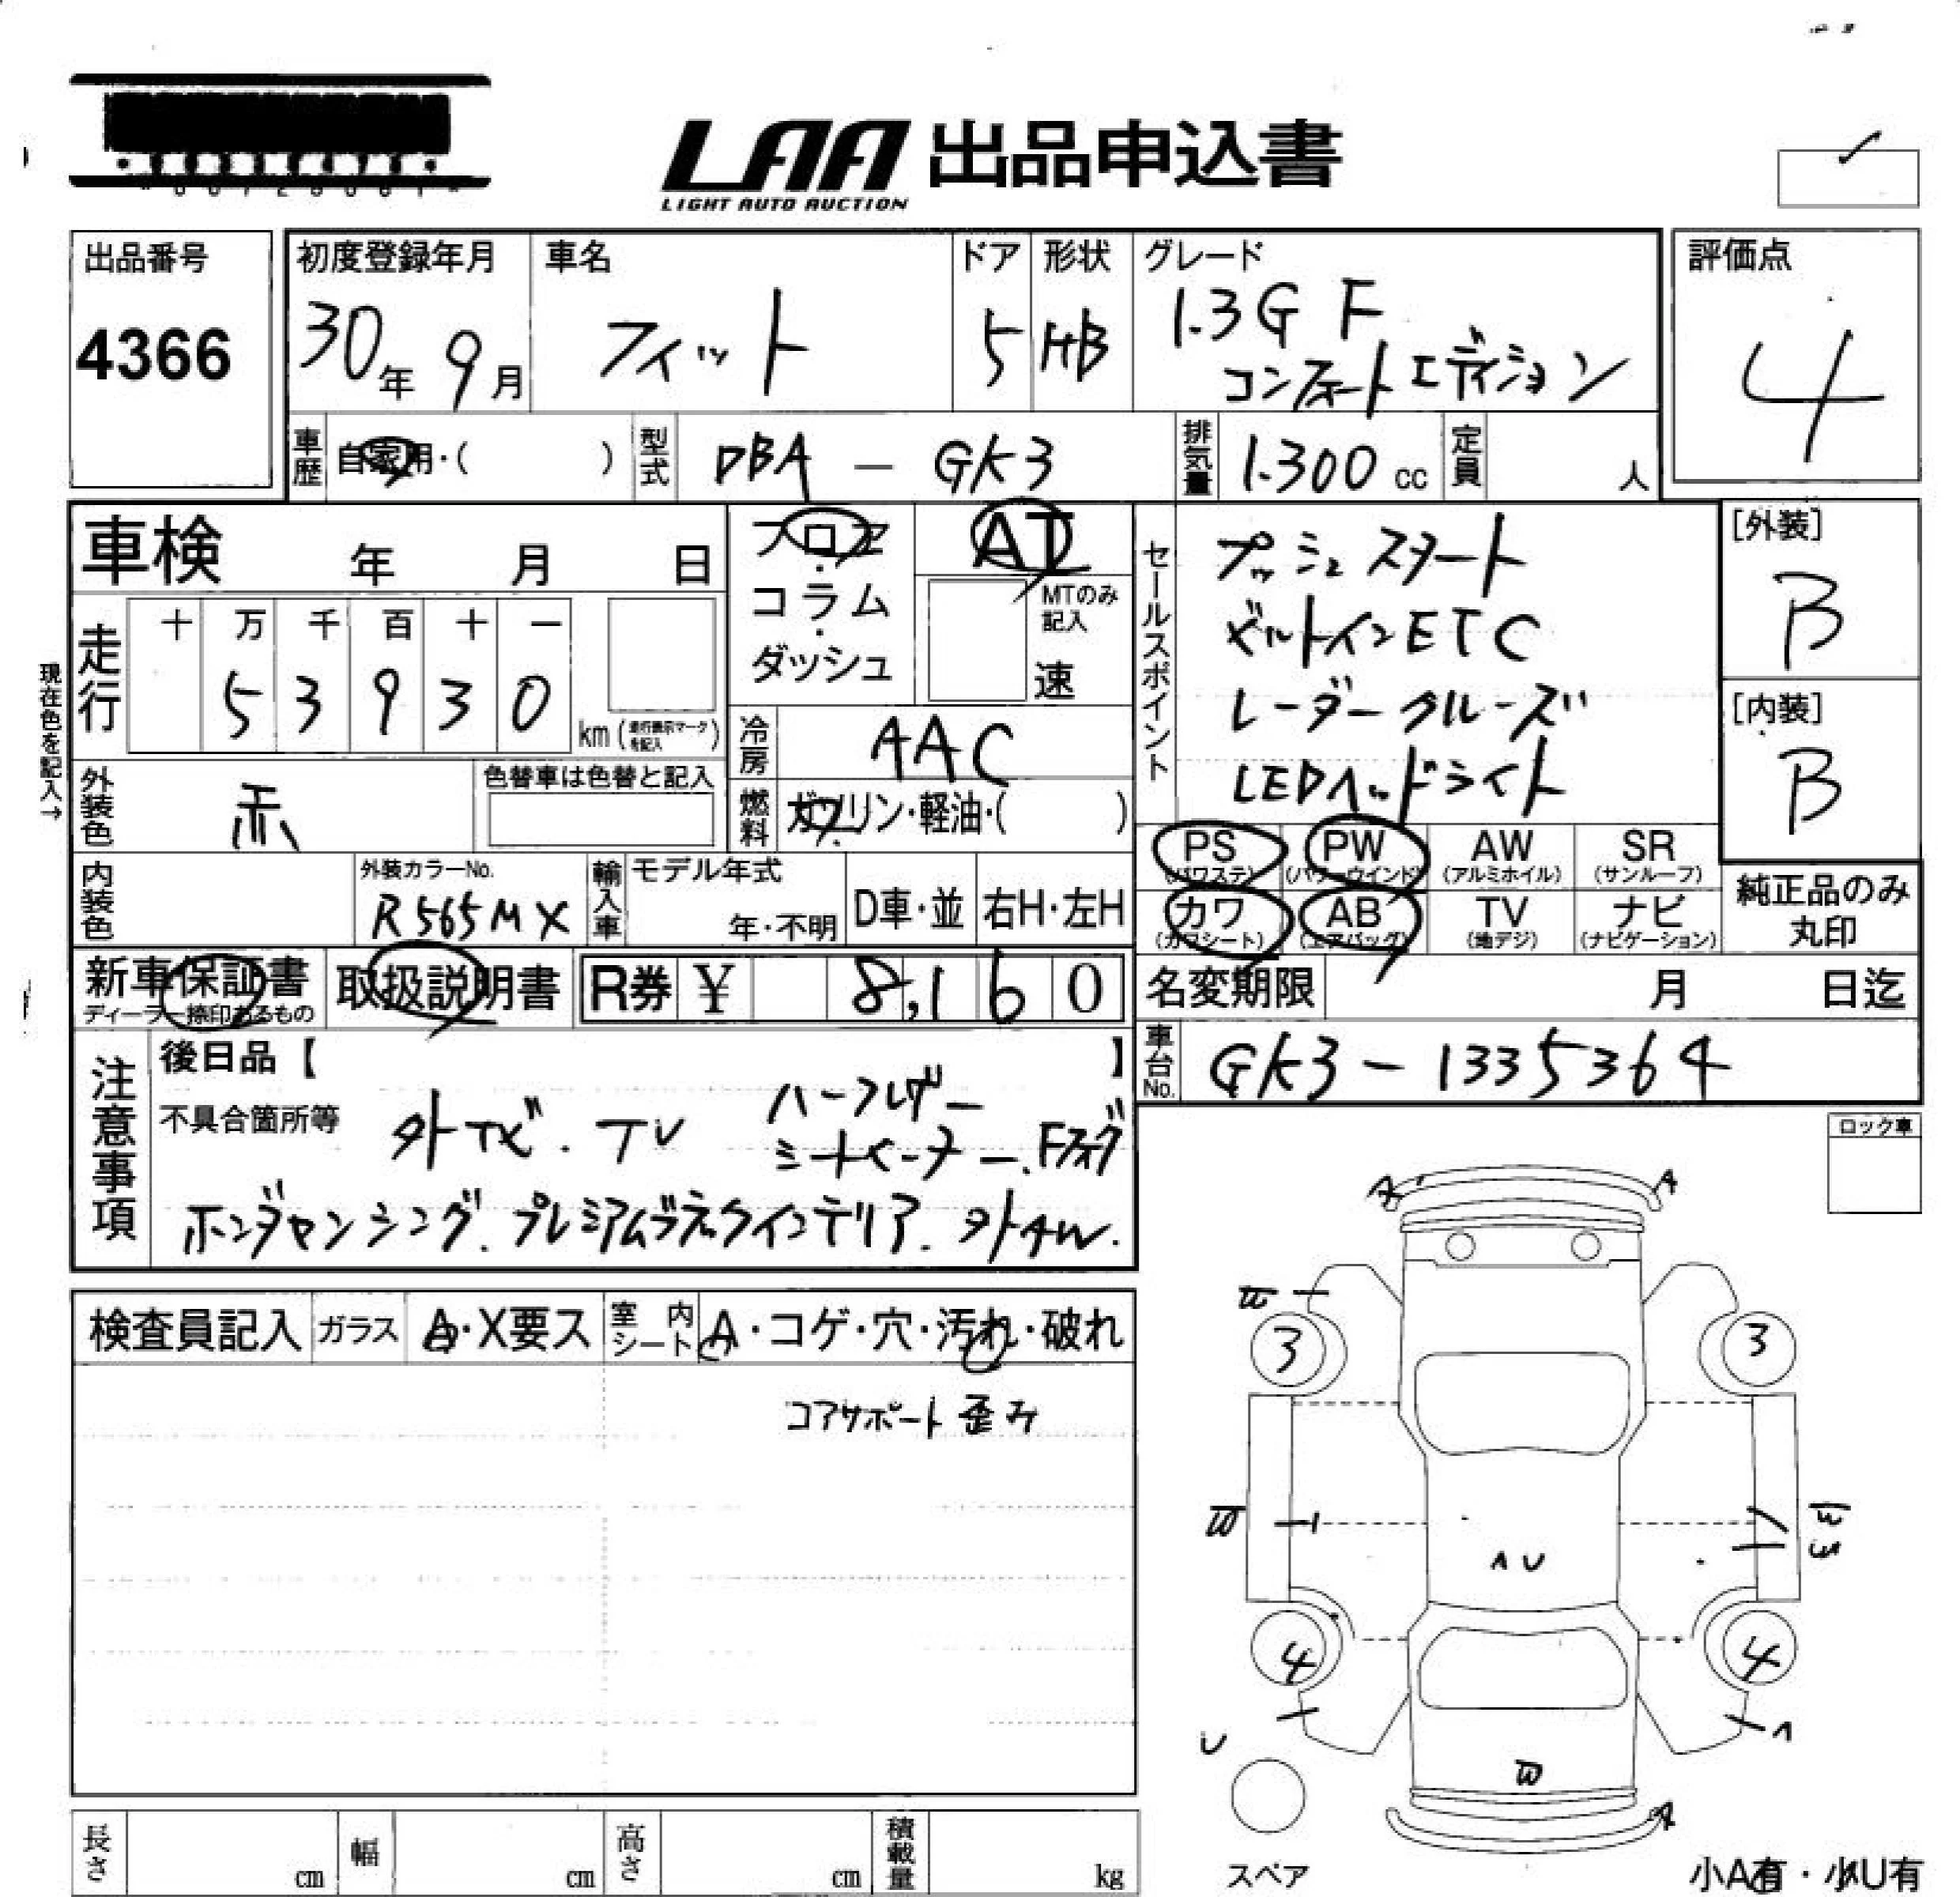 LAA 出品申込書
LIGHT AUTO AUCTION
出品番号
4366
初度登録年月
30年 9月
車名
フィット
ドア
5
形状
HB
グレード
1.3G F
コンフォートエディション
評価点
4
車歴 自家用・( )
型式 DBA - GK3
排気量 1.300 cc
定員 人
車検 年 月 日
フロア・コラム・ダッシュ
AT
MTのみ記入
速
セールスポイント
プッシュスタート
ビルトインETC
レーダークルーズ
LEDヘッドライト
[外装]
B
[内装]
B
現在色を記入→
走行
十 万 千 百 十 一
5 3 9 3 0
km (走行表示マークを記入)
冷房 AAC
外装色 赤
色替車は色替と記入
燃料 ガソリン・軽油・( )
PS (パワステ)
PW (パワーウインド)
AW (アルミホイル)
SR (サンルーフ)
カワ (カワシート)
AB (エアバッグ)
TV (地デジ)
ナビ (ナビゲーション)
純正品のみ丸印
内装色
外装カラーNo.
R565MX
輸入車
モデル年式
年・不明
D車・並
右H・左H
新車保証書
ディーラー捺印あるもの
取扱説明書
R券 ¥ 8,160
名変期限 月 日迄
車台No. GK3-1335364
注意事項
後日品【 】
不具合箇所等
外ナビ.TV ハーフレザーシートヒーター.Fフォグ
ホンダセンシング.プレミアムブラックインテリア.外AW.
ロック車
検査員記入
ガラス A・X要ス
室内シート A・コゲ・穴・汚れ・破れ
コアサポート歪み
A
A
W
3
3
W
W
W
AU
4
4
U
A
W
A
スペア
小A有・小U有
長さ cm
幅 cm
高さ cm
積載量 kg